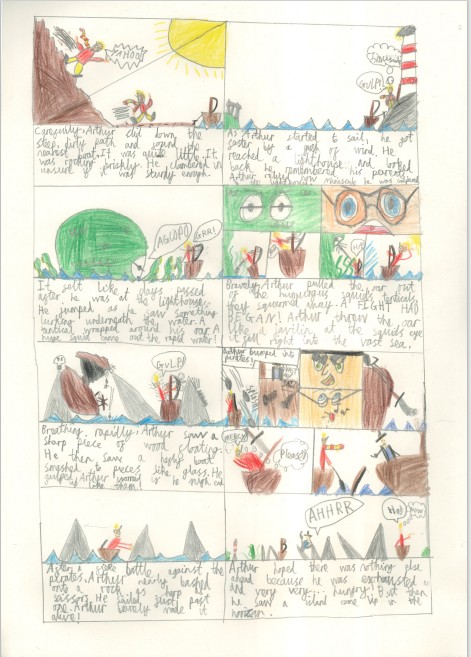 YAHOOO
GULP!
Carefully, Arthur slid down the
steep, dirty path and found the
nearest rowboat. It was quite little. It
was rocking briskly. He clambered in
unsure if it was sturdy enough.
As Arthur started to sail, he got
faster by a gush of wind. He
reached a lighthouse and looked
back remembered his parents
AGLOPO
GRR!
It felt like days passed
after he was at the lighthouse.
He jumped as he saw something
lurking underneath the water. A
wrapped around his oar. A
huge squid came out the rapid water!
Bravely, Arthur pulled the oar out
of the squids
they squirmed away. A FIGHT HAD
BEGAN! Arthur threw the oar
like a at the squids eye
it fell right into the vast sea.
GULP!
Breathing rapidly, Arthur saw a
sharp piece of wood floating.
He then saw a boat
smashed to pieces like glass. He
gulped. Arthur he might end
up like them!
Arthur bumped into
pirates!
Please!
After a battle against the
pirates, Arthur nearly bashed
onto a rock as sharp as
scissors. He sailed just past
one. Arthur made it
alive!
AHHRR
Arthur hoped there was nothing else
ahead because he was exhausted
and very very... hungry! But then
he saw a island come up in the
horizon.